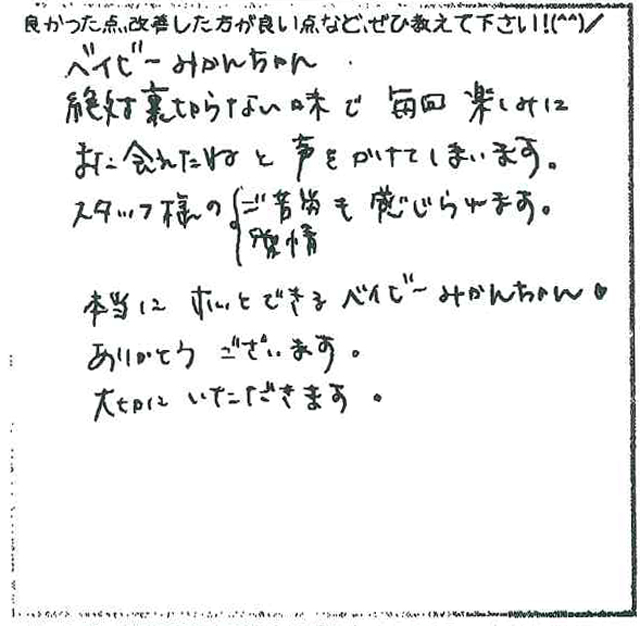 良かった点、改善した方が良い点など、ぜひ教えて下さい!!(^^)／
ベイビーみかんちゃん
絶対裏切らない味で 毎回 楽しみに
また会えたねと声をかけてしまいます。
スタッフ様のご苦労も感じられます。
情
本当に ほっとできるベイビーみかんちゃん♥
ありがとう ございます。
大切に いただきます。